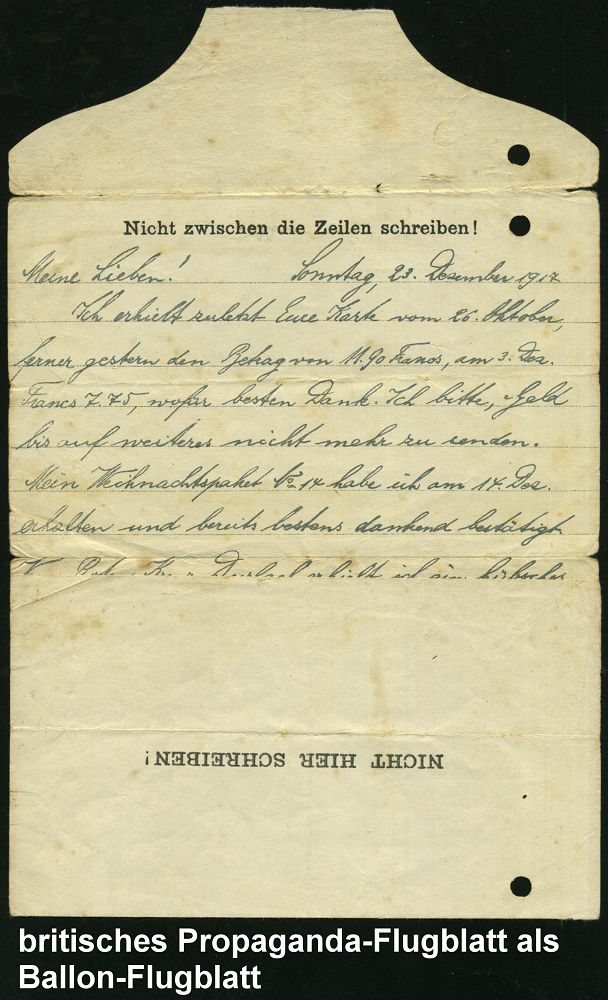 Nicht zwischen die Zeilen schreiben!
Meine Lieben! Sonntag, 23. Dezember 1917
Ich erhielt zuletzt Eure Karte vom 26. Oktober,
ferner gestern den Betrag von 11.90 Francs, am 3. Dez.
Francs 7.75, wofür besten Dank. Ich bitte, Geld
bis auf weiteres nicht mehr zu senden.
Mein Weihnachtspaket No 14 habe ich am 14. Dez.
erhalten und bereits bestens dankend bestätigt.
erhielt ich ein hübsches
NICHT HIER SCHREIBEN!
britisches Propaganda-Flugblatt als
Ballon-Flugblatt